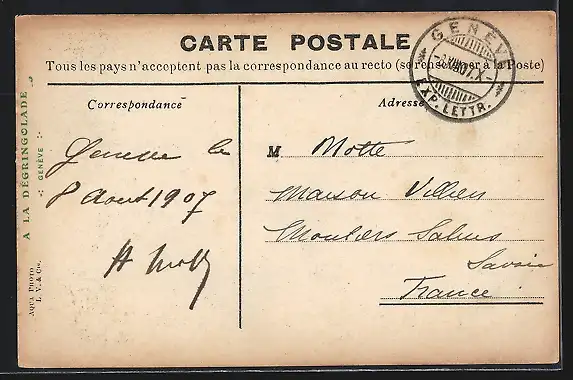 CARTE POSTALE
Tous les pays n'acceptent pas la correspondance au recto (se renseigner à la Poste)
GENÈV
EXP. LETTR.
Correspondance
Adresse
Genève le
8 Aout 1907
M Motte
Maison Villien
Moutiers Salins
Savoie
France
A LA DÉGRINGOLADE
GENÈVE
AQUA PHOTO
L. V. & Cs.